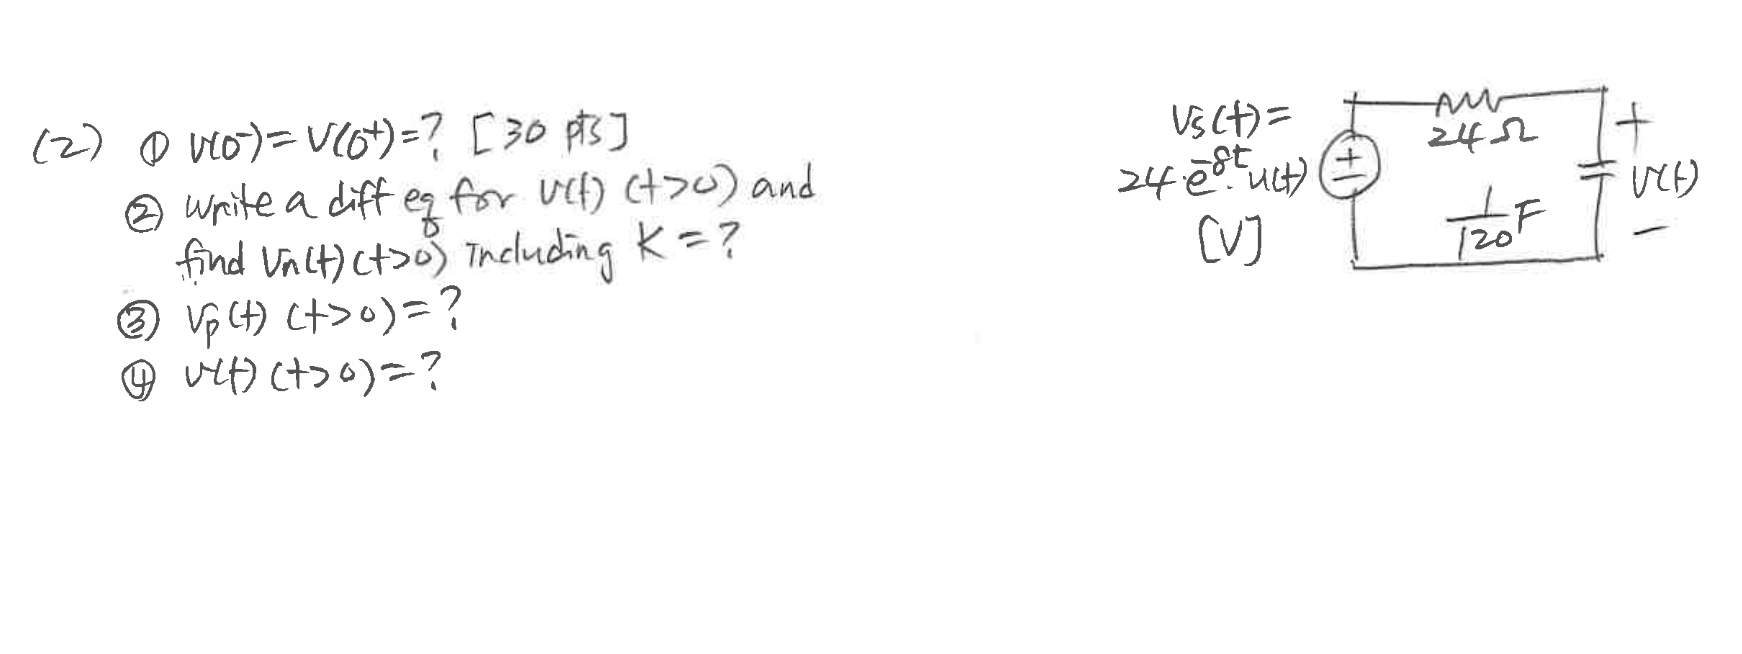 (2) ① v(0⁻)=v(0⁺)=? [30 pts]
② write a diff eq for v(t) (t>0) and
find vn(t) (t>0) including K=?
③ vp(t) (t>0)=?
④ v(t) (t>0)=?
vs(t)=
24·e^-8t·u(t)
[V]
24Ω
1/120 F
+
v(t)
−